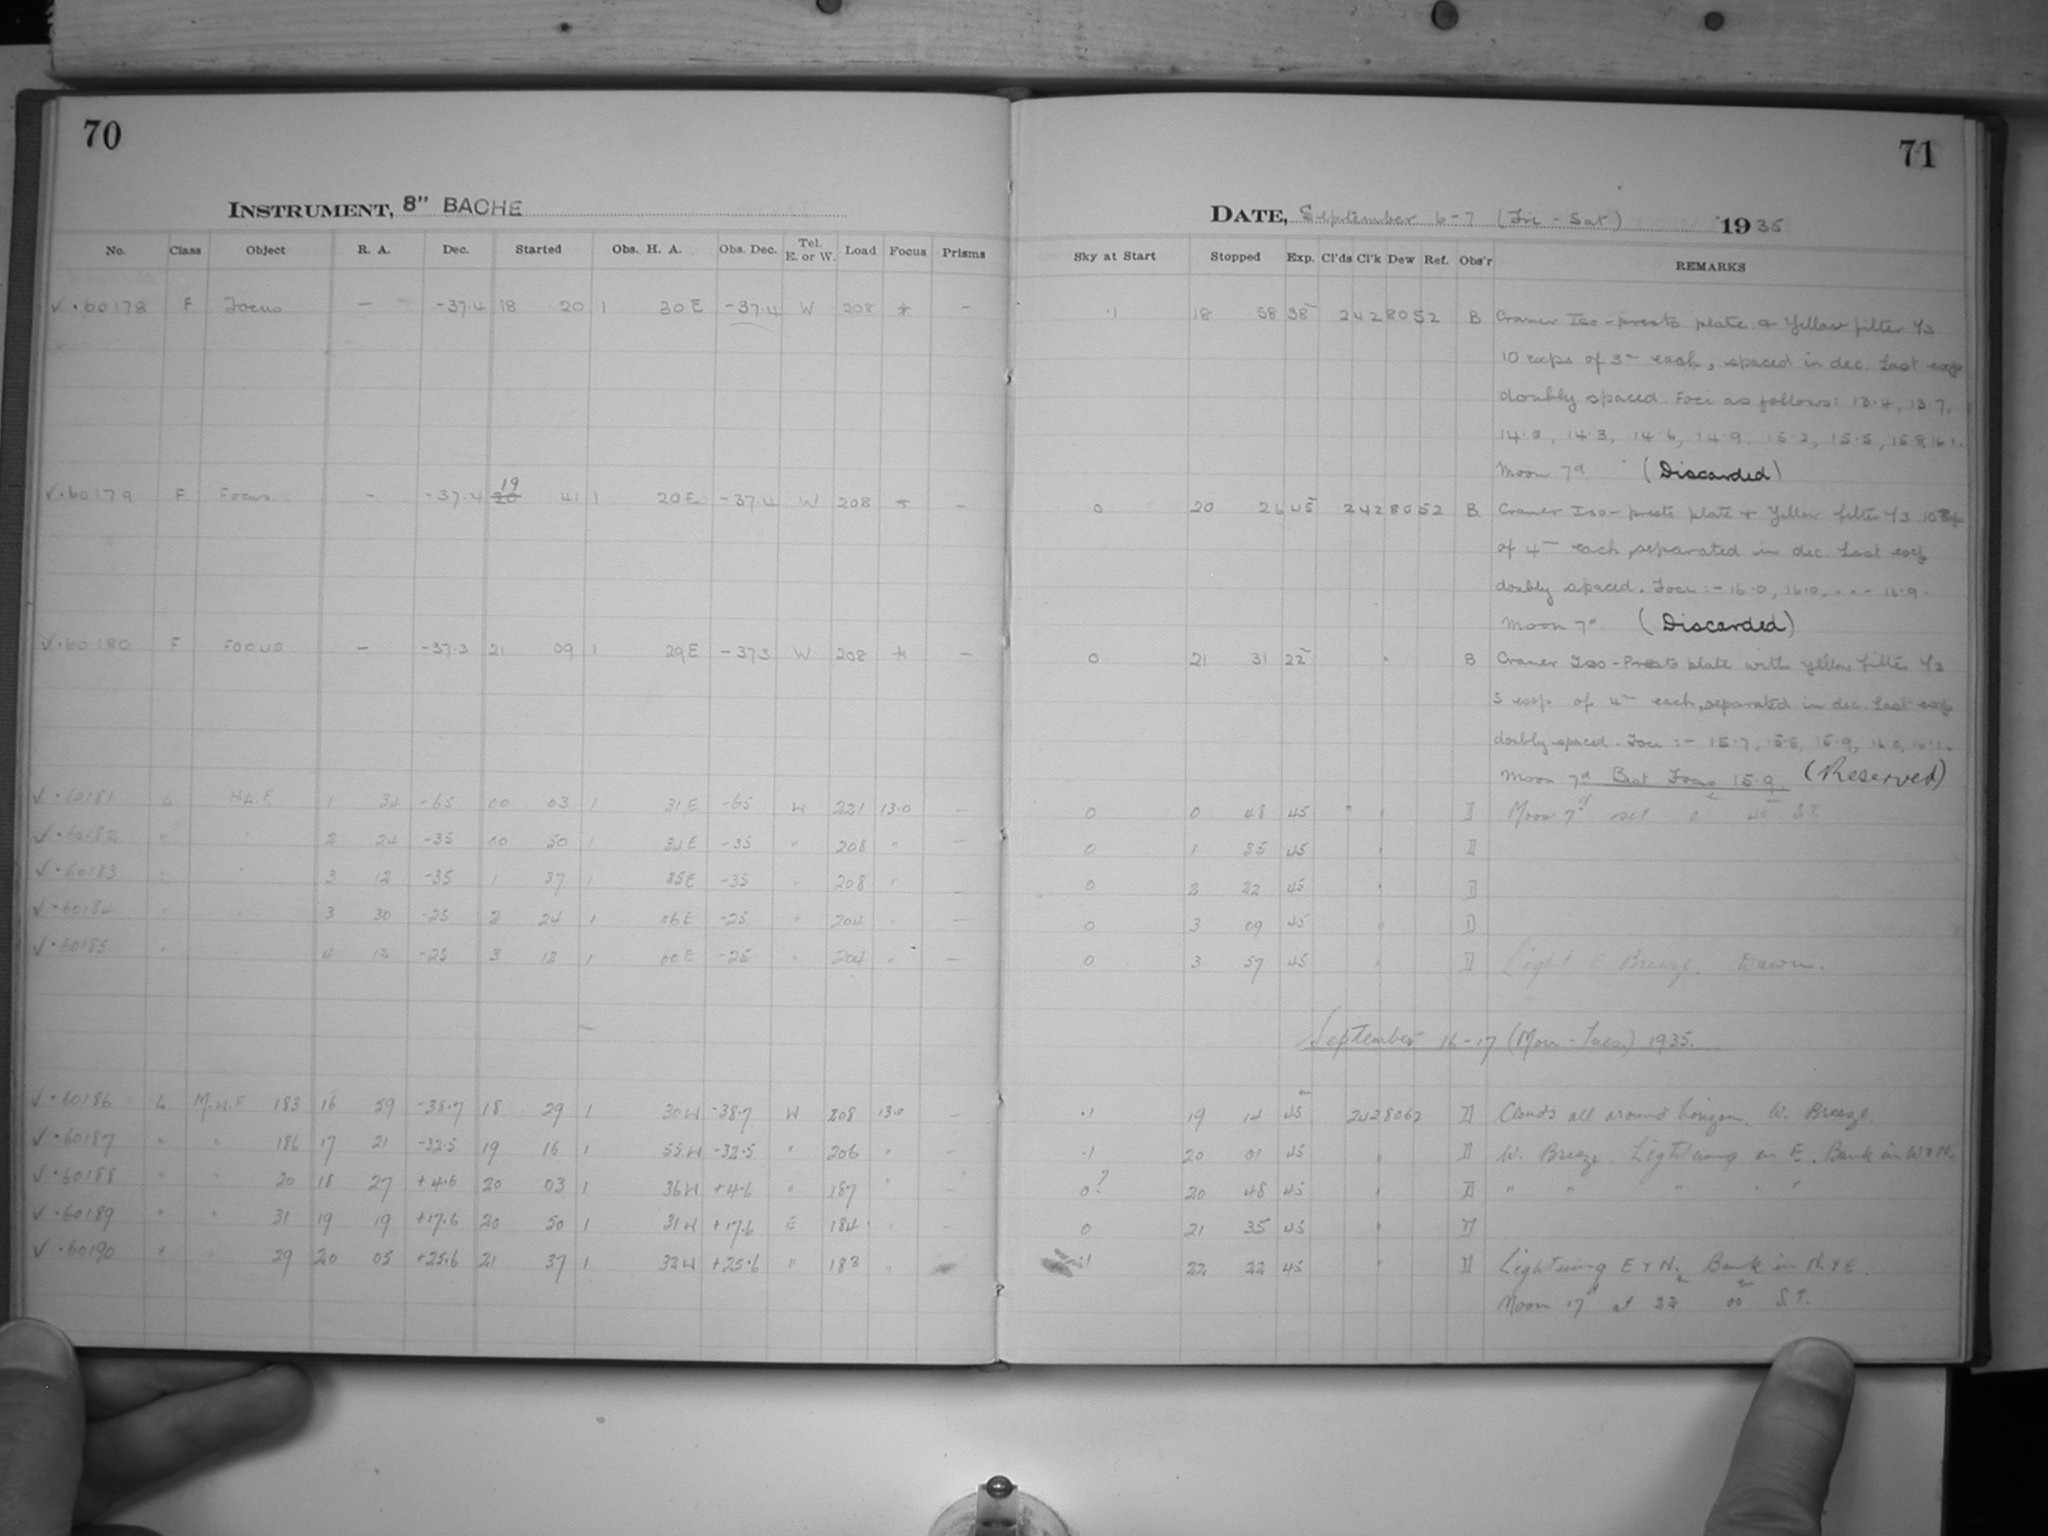 70
INSTRUMENT, 8" BACHE
No. Class Object R. A. Dec. Started Obs. H. A. Obs. Dec. Tel. E. or W. Load Focus Prisms
√ · 60178 F Focus — -37.4 18 20 1 30 E -37.4 W 208 * —
√ · 60179 F Focus — -37.4 19 41 1 20 E -37.4 W 208 * —
√ · 60180 F FOCUS — -37.3 21 09 1 29 E -37.3 W 208 * —
√ · 60181 L 1 34 -65 00 03 1 31 E -65 W 221 13.0 —
√ · 60182 " " 2 24 -35 00 50 1 34 E -35 " 208 " —
√ · 60183 " " 3 12 -35 1 37 1 35 E -35 " 208 " —
√ · 60184 " " 3 30 -25 2 24 1 06 E -25 " 204 " —
√ · 60185 " " 4 12 -25 3 12 1 00 E -25 " 204 " —
√ · 60186 L M.W.F 183 16 59 -38.7 18 29 1 30 W -38.7 W 208 13.0 —
√ · 60187 " " 186 17 21 -32.5 19 16 1 55 W -32.5 " 206 " —
√ · 60188 " " 20 18 27 +4.6 20 03 1 36 W +4.6 " 187 " —
√ · 60189 " " 31 19 19 +17.6 20 50 1 31 W +17.6 E 184 " —
√ · 60190 " " 29 20 05 +25.6 21 37 1 32 W +25.6 " 183 "
71
DATE, September 6-7 (Fri - Sat) 1935
Sky at Start Stopped Exp. Cl'ds Cl'k Dew Ref. Obs'r REMARKS
.1 18 58 38 2 42 80 52 B Cramer Iso-presto plate & Yellow filter Y3
10 exps of 3m each, spaced in dec. Last exp
doubly spaced. Foci as follows: 13.4, 13.7,
14.0, 14.3, 14.6, 14.9, 15.2, 15.5, 15.8, 16.1.
Moon 7d (Discarded)
0 20 26 45 2 42 80 52 B Cramer Iso-presto plate + Yellow filter Y3 10 exps
of 4m each, separated in dec. Last exp
doubly spaced. Foci :- 16.0, 16.0, - - - 16.9.
Moon 7d (Discarded)
0 21 31 22 " B Cramer Iso-Presto plate with yellow filter Y3
5 exps of 4m each, separated in dec. Last exp
doubly spaced. Foci :- 15.7, 15.8, 15.9, 16.0, 16.1.
Moon 7d Best Focus 15.9. (Reserved)
0 0 48 45 " " D Moon 7d set
0 1 35 45 " D
0 2 22 45 " D
0 3 09 45 " D
0 3 57 45 " D Light E Breeze. Dawn.
September 16-17 (Mon - Tues.) 1935.
.1 19 14 45 2428062 D Clouds all around horizon. W. Breeze.
.1 20 01 45 " D W. Breeze. Lightning in E. Bank in W & N.
0? 20 48 45 " D " " " " "
0 21 35 45 " D
.1 22 22 45 " D Lightning E & N. Bank in N. & E.
Moon 17d at 22h 00m S.T.